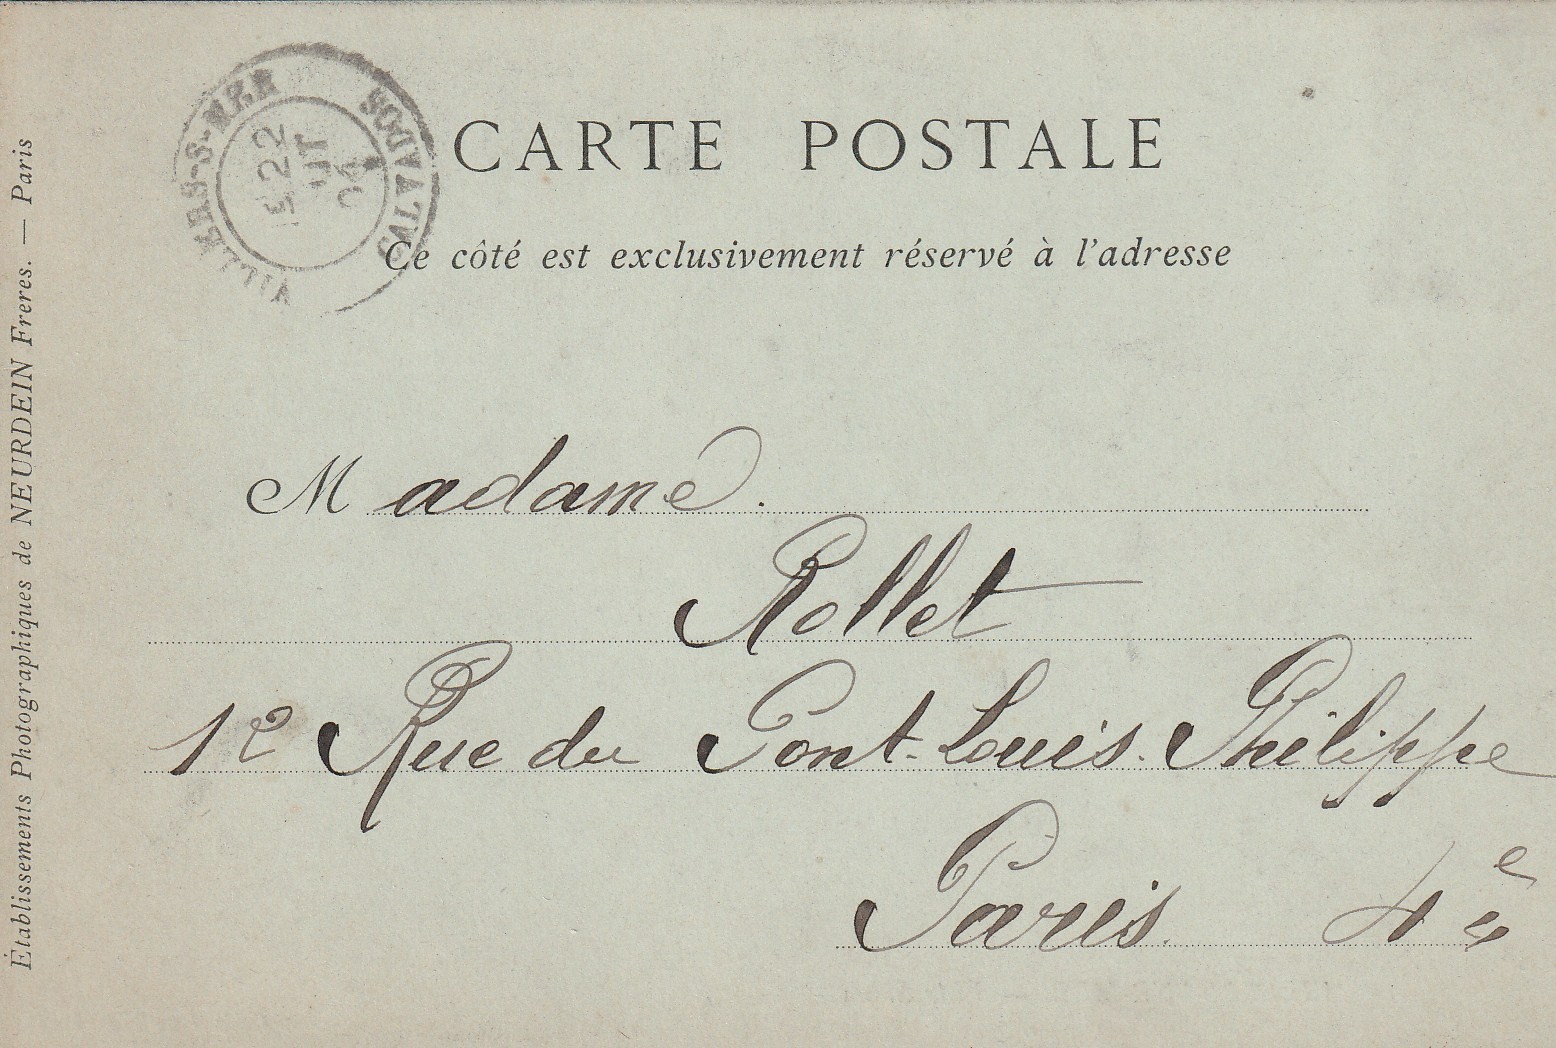 CARTE POSTALE
Ce côté est exclusivement réservé à l'adresse
VILLERS-S-MER CALVADOS
22
04
Madame.
Rollet
12 Rue du Pont-Louis-Philippe
Paris 4e
Établissements Photographiques de NEURDEIN Frères. — Paris